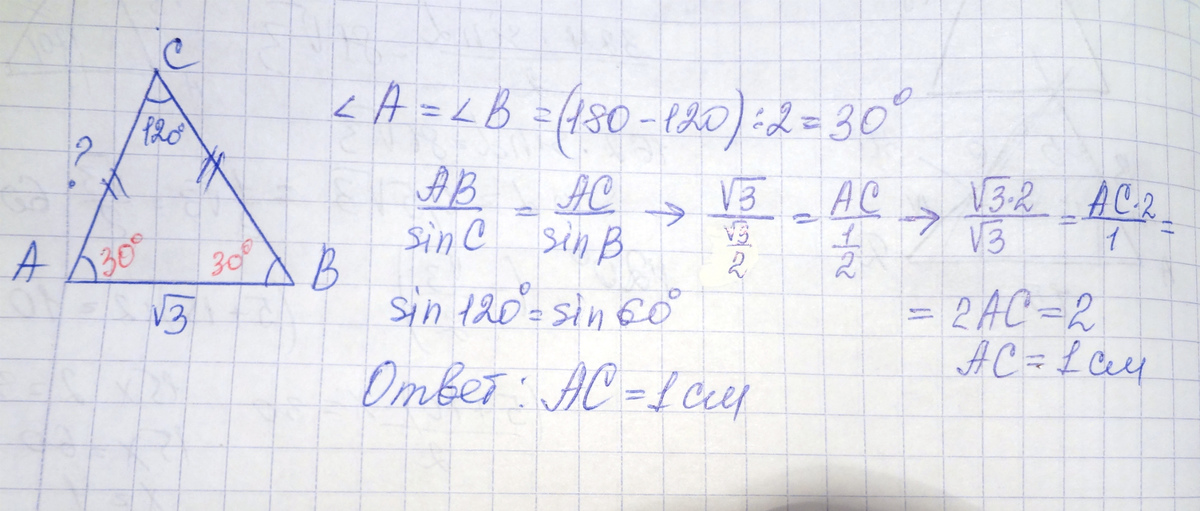 C
120°
?
A 30° 30° B
√3
∠A = ∠B = (180 - 120) ÷ 2 = 30°
AB/sin C = AC/sin B → √3/(√3/2) = AC/(1/2) → √3·2/√3 = AC·2/1 =
sin 120° = sin 60°
= 2AC = 2
AC = 1 см
Ответ: AC = 1 см